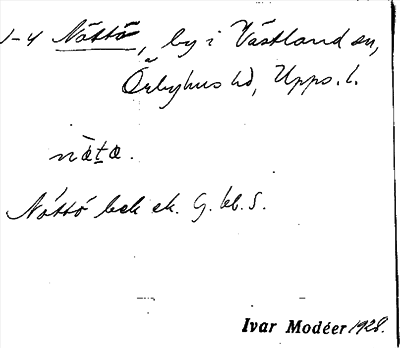 1-4 Nöttö, by i Västland sn,
Örbyhus hd, Upps. l.
nœ̀ta.
Nöttö bck ek. G. bl. 5.
Ivar Modéer 1928.